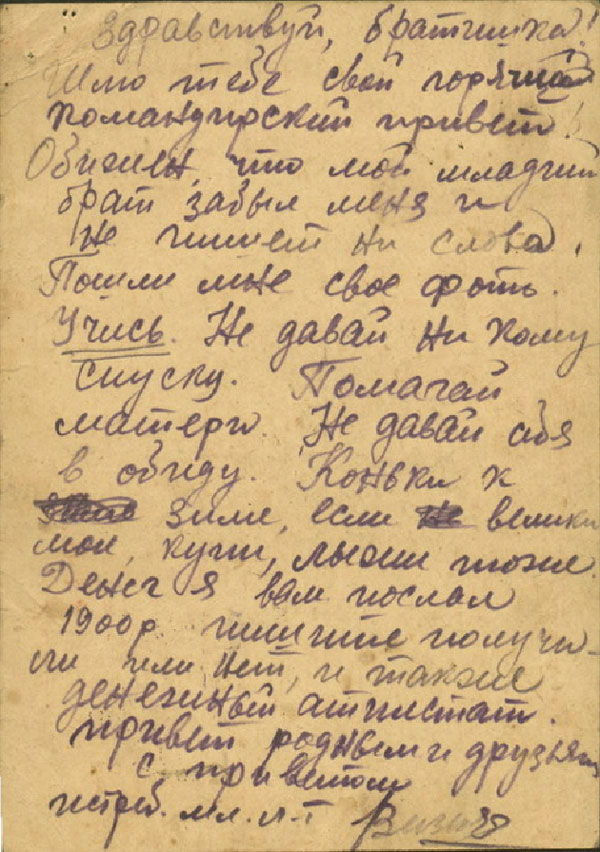 Здравствуй, братишка!
Шлю тебе свой горячий
командирский привет!
Обижен, что мой младший
брат забыл меня и
не пишет ни слова.
Пошли мне свое фото.
Учись. Не давай ни кому
спуску. Помагай
матери. Не давай себя
в обиду. Коньки к
зиме, если велики
мои, купи, лыжи тоже.
Денег я вам послал
1900р пишите получи-
ли или нет, и также
денежный аттестат.
привет родным и друзьям
с приветом
истреб. мл. л-т